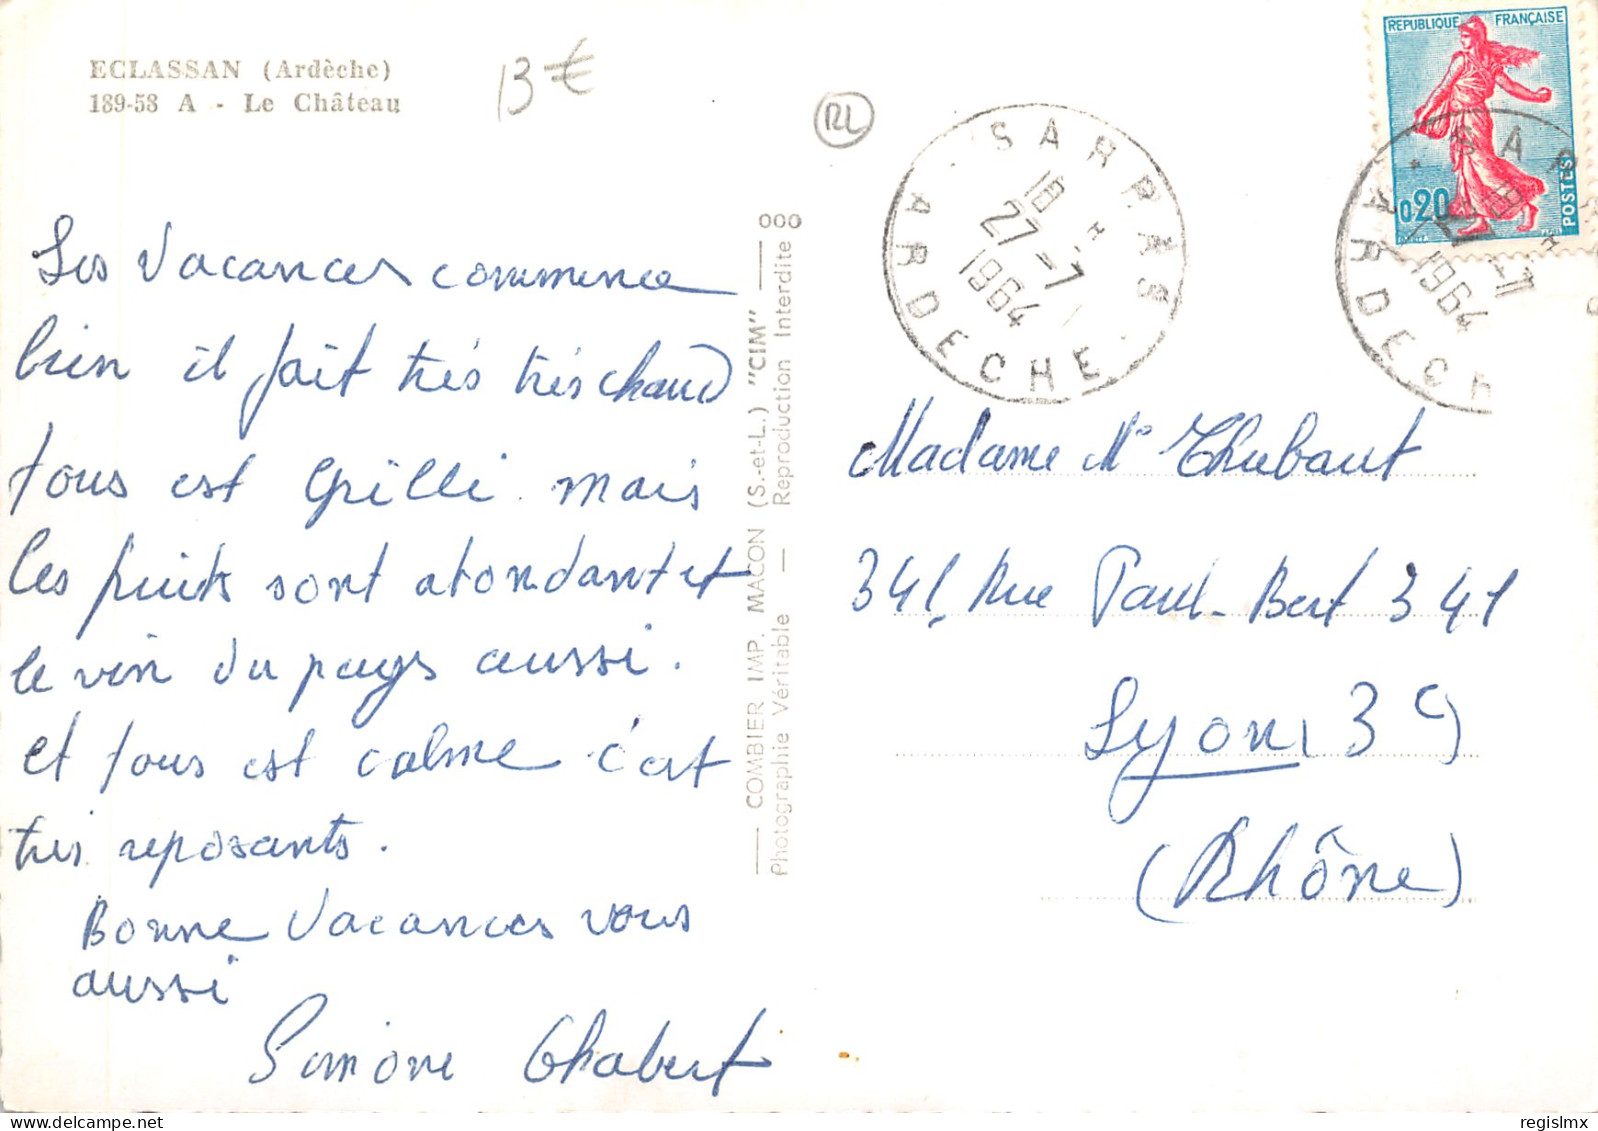 ECLASSAN (Ardèche)
189-58 A - Le Château
13€
RL
Les Vacances commence
bien il fait très très chaud
tous est Grilli mais
les fruits sont abondant et
le vin du pays aussi.
et tous est calme c'est
très reposants.
Bonne Vacances vous
aussi
Simone Chabert
COMBIER IMP. MACON (S.-et-L.) "CIM"
Photographie Véritable — Reproduction Interdite
000
SARRAS
18 *
27-7
1964
ARDECHE
REPUBLIQUE FRANÇAISE
0,20
POSTES
SAR
18
27-7
1964
ARDECH
Madame Me Thubaut
341, Rue Paul-Bert 341
Lyon 3e
(Rhône)
regislmx